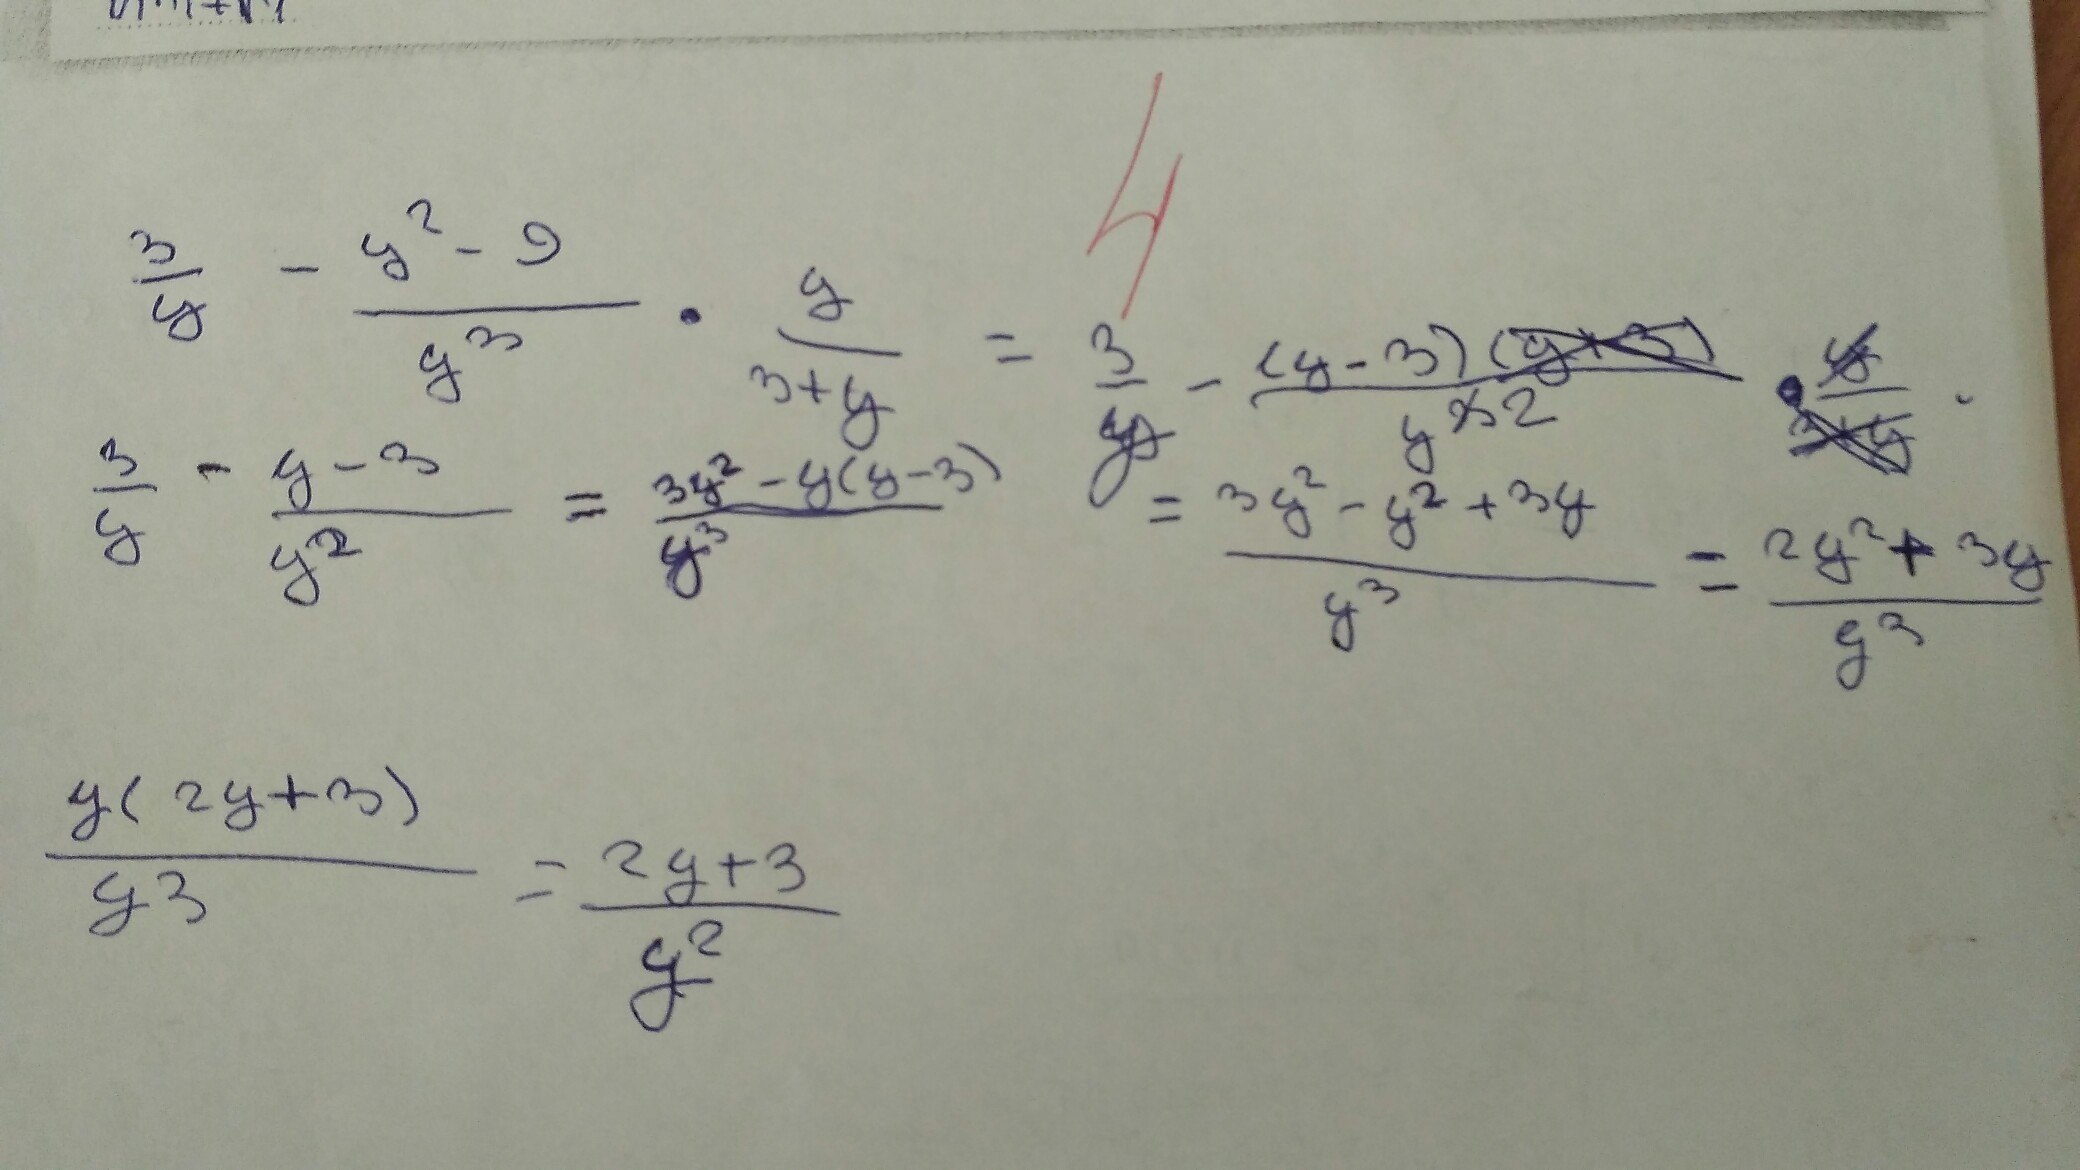 4
3/y - (y² - 9)/y³ · y/(3+y) = 3/y - (y-3)(y+3)/y³2 · y/(3+y) -
3/y - (y-3)/y² = (3y² - y(y-3))/y³ = (3y² - y² + 3y)/y³ = (2y² + 3y)/y³
y(2y+3)/y3 = (2y+3)/y²